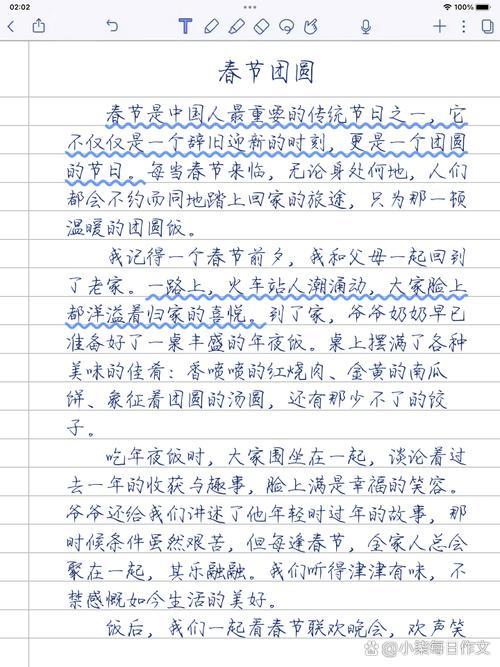 02:02
100%
春节团圆
春节是中国人最重要的传统节日之一，它
不仅仅是一个辞旧迎新的时刻，更是一个团圆
的节日。每当春节来临，无论身处何地，人们
都会不约而同地踏上回家的旅途，只为那一顿
温暖的团圆饭。
我记得一个春节前夕，我和父母一起回到
了老家。一路上，火车站人潮涌动，大家脸上
都洋溢着归家的喜悦。到了家，爷爷奶奶早已
准备好了一桌丰盛的年夜饭。桌上摆满了各种
美味的佳肴：香喷喷的红烧肉、金黄的南瓜
饼、象征着团圆的汤圆，还有那少不了的饺
子。
吃年夜饭时，大家围坐在一起，谈论着过
去一年的收获与趣事，脸上满是幸福的笑容。
爷爷还给我们讲述了他年轻时过年的故事，那
时候条件虽然艰苦，但每逢春节，全家人总会
聚在一起，其乐融融。我们听得津津有味，不
禁感慨如今生活的美好。
饭后，我们一起看春节联欢晚会，欢声笑
小柒每日作文